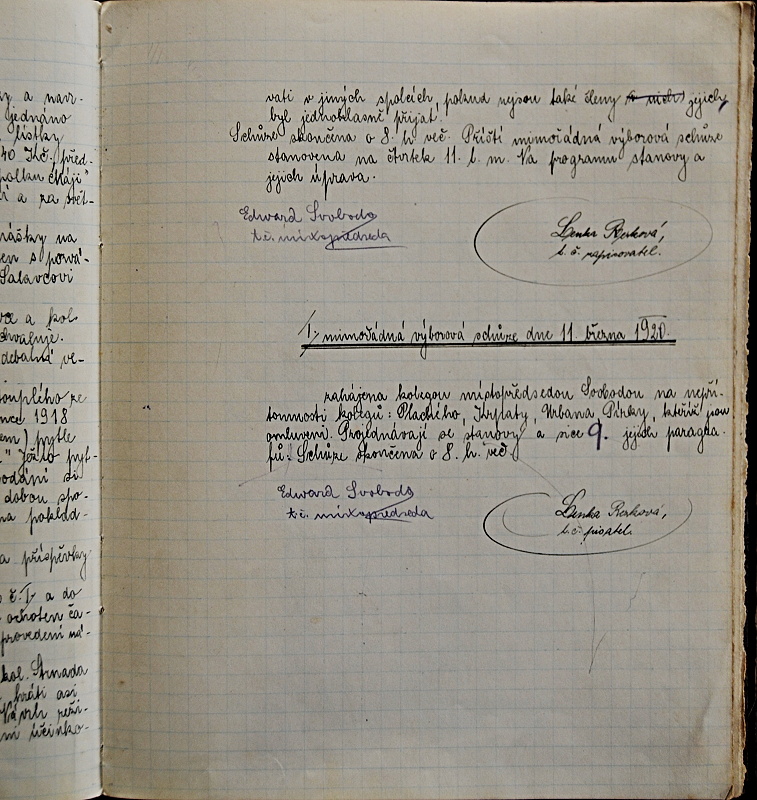 y a navr-
jednáno
lístky
40 Kč. před-
polku "Máji"
í a za svět-
nášky na
en s pová-
Salavcovi
a kol.
chvaluje.
debatná ve-
ouplého ze
1918
em) pytle
" Ježto pyt-
podání si
dobou spo-
na poklad-
a příspěvky
č. I. a do
ochoten ča-
provedení ná-
kol. Strnada
hráti asi
Návrh reži-
m účinko-
vati v jiných spolcích, pokud nejsou také členy v nich jejich,
byl jednohlasně přijat.
Schůze skončena o 8. h. več. Příští mimořádná výborová schůze
stanovena na čtvrtek 11. t. m. Na programu stanovy a
jejich úprava.
Edward Svoboda
t.č. místopředseda
Lenka Reková,
t. č. zapisovatel.
1. mimořádná výborová schůze dne 11. března 1920.
zahájena kolegou místopředsedou Svobodou na nepří-
tomnosti kolegů: Plachého, Urbana Pirky, kteříž jsou
omluveni. Projednávají se stanovy a sice 9. jejich paragra-
fů. Schůze skončena o 8. h. več.
Edward Svoboda
t.č. místopředseda
Lenka Reková,
t. č. pisatel.